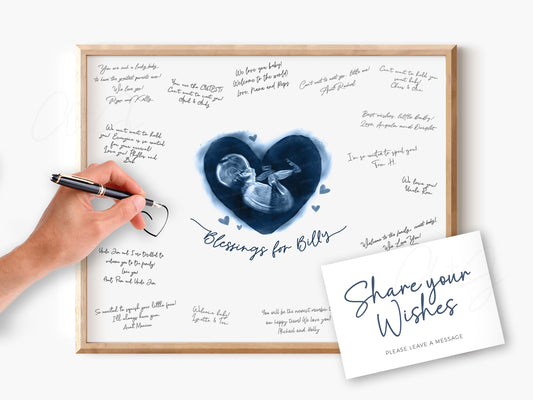 You are a lucky baby,
to have the greatest parents ever!
We love you!
Pops and Kelly
You are the CUTEST!
Can't wait to meet you!
We love you baby!
Welcome to the world!
Love, Nana and Pops
Can't wait to meet you little one!
Aunt Rachel
Can't wait to hold you
sweet baby!
Best wishes, little Daddy!
I'm so excited to spoil you!
Tom H.
We love you!
Uncle Ron
We can't wait to hold
you! Everyone is so excited
for your arrival!
Love you! Phillis and
Bob
Blessings for Billy
Welcome to the family, sweet baby!
We Love You!
Uncle Jim and I are thrilled to
welcome you to the family!
Love you!
Aunt Pam and Uncle Jim
So excited to squish your little face!
I'll always love you.
Aunt Marcia
Welcome baby!
Lynette & Tom
You will be the newest member to
our happy tribe! We love you!
Michael and Molly
Share your
Wishes
PLEASE LEAVE A MESSAGE